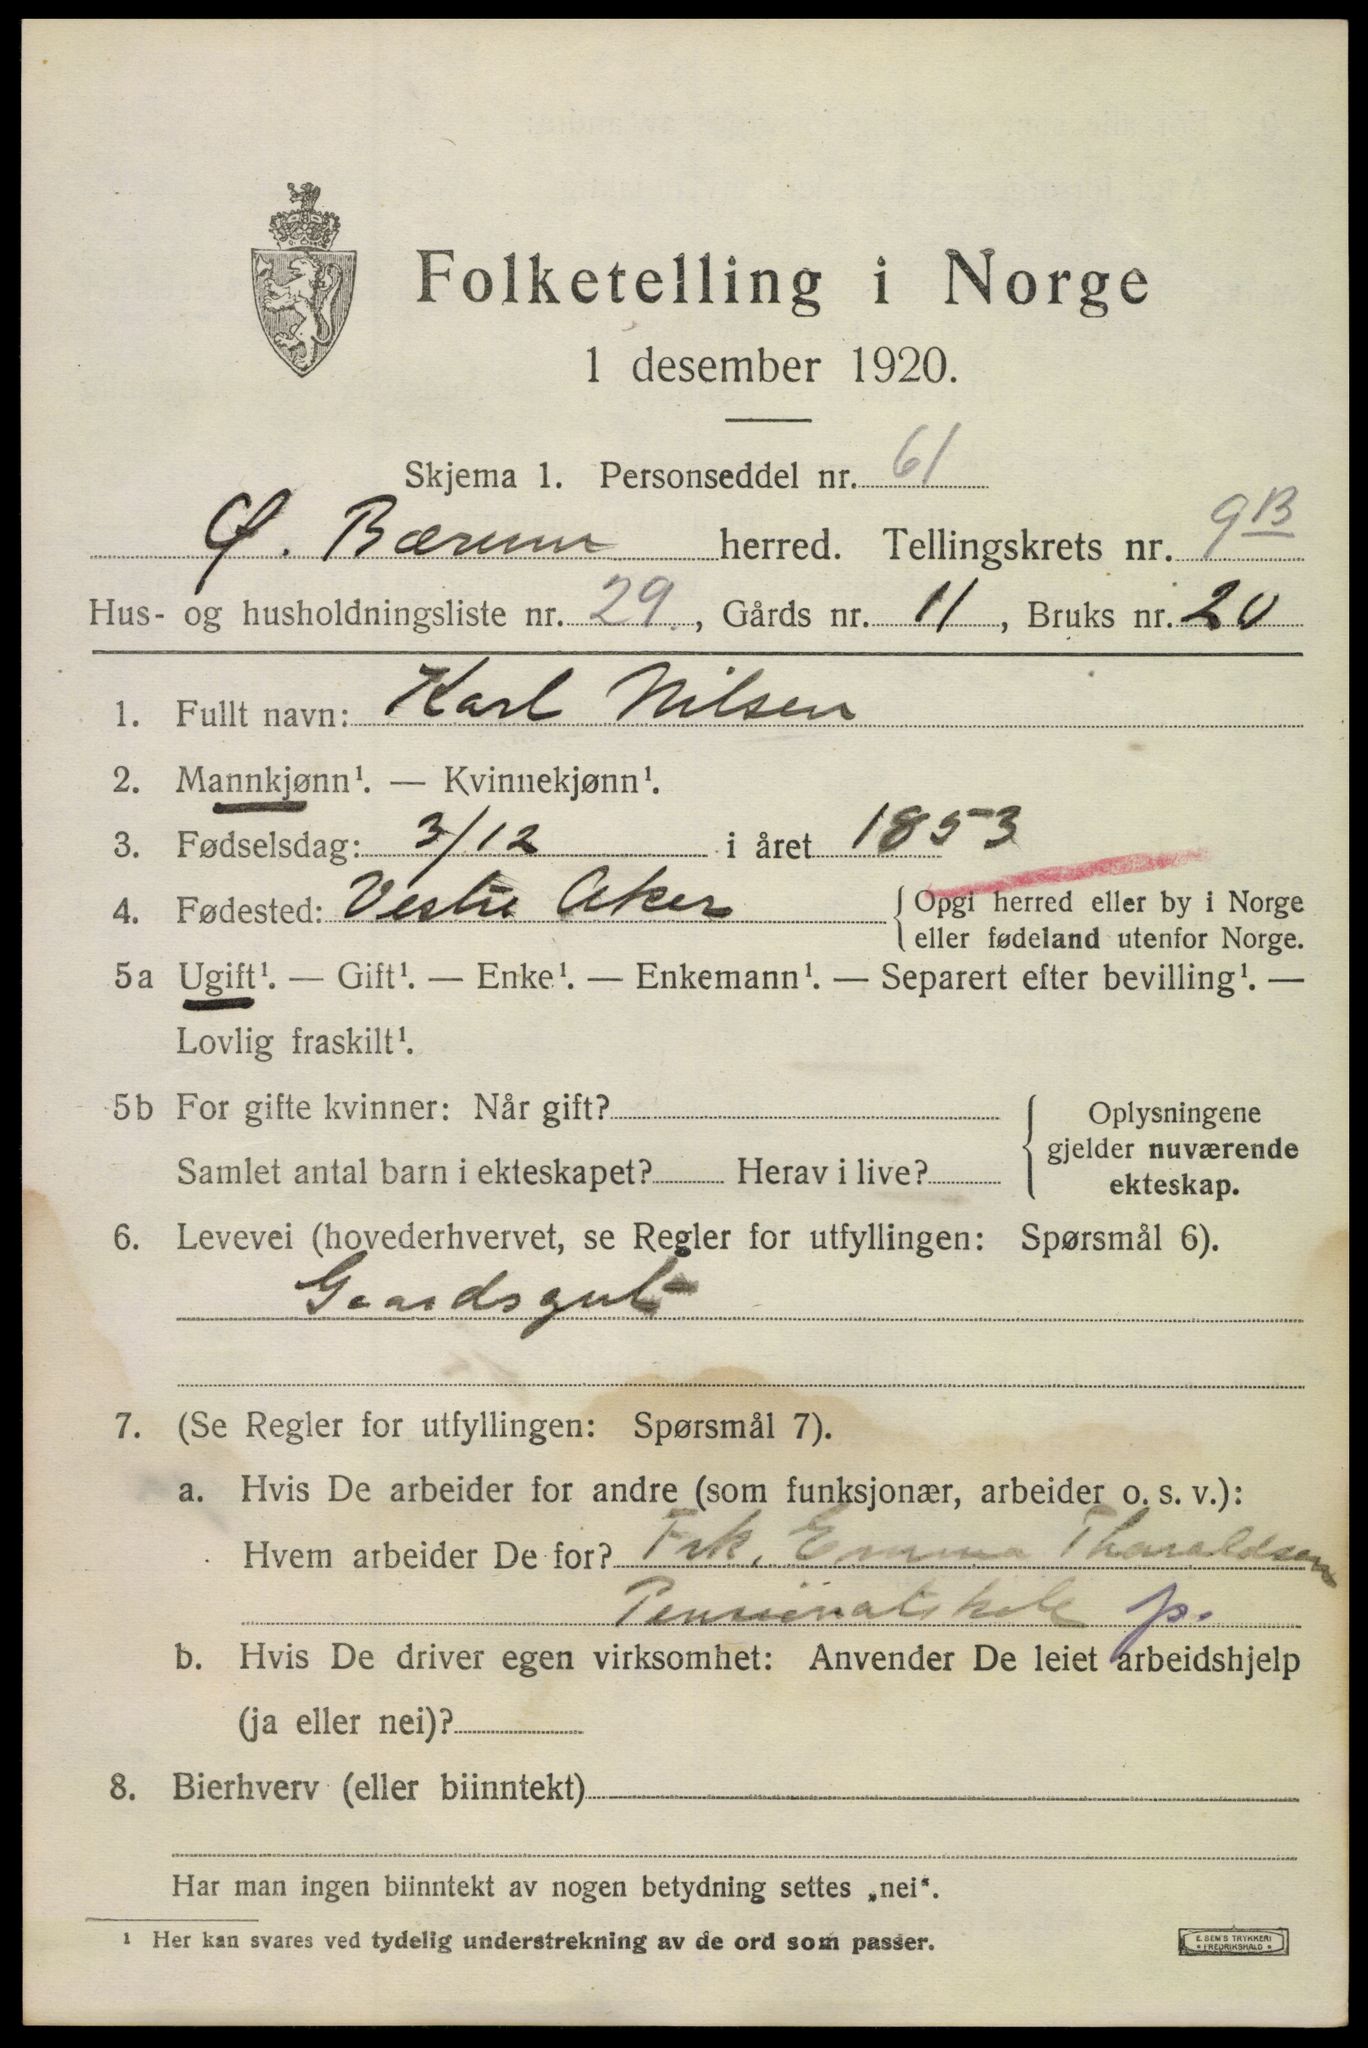 Folketelling i Norge
1 desember 1920.
Skjema 1. Personseddel nr. 61
Ø. Bærum herred. Tellingskrets nr. 9B
Hus- og husholdningsliste nr. 29., Gårds nr. 11, Bruks nr. 20
1. Fullt navn: Karl Nilsen
2. Mannkjønn¹. — Kvinnekjønn¹.
3. Fødselsdag: 3/12 i året 1853
4. Fødested: Vestre Aker { Opgi herred eller by i Norge
eller fødeland utenfor Norge.
5a Ugift¹. — Gift¹. — Enke¹. — Enkemann¹. — Separert efter bevilling¹. —
Lovlig fraskilt¹.
5b For gifte kvinner: Når gift? { Oplysningene
gjelder nuværende
Samlet antal barn i ekteskapet? Herav i live? ekteskap.
6. Levevei (hovederhvervet, se Regler for utfyllingen: Spørsmål 6).
Gaardsgut
7. (Se Regler for utfyllingen: Spørsmål 7).
a. Hvis De arbeider for andre (som funksjonær, arbeider o. s. v.):
Hvem arbeider De for? Frk. Emma Tharaldsen
p.
b. Hvis De driver egen virksomhet: Anvender De leiet arbeidshjelp
(ja eller nei)?
8. Bierhverv (eller biinntekt)
Har man ingen biinntekt av nogen betydning settes „nei“.
¹ Her kan svares ved tydelig understrekning av de ord som passer.
E. SEM'S TRYKKERI
* FREDRIKSHALD *